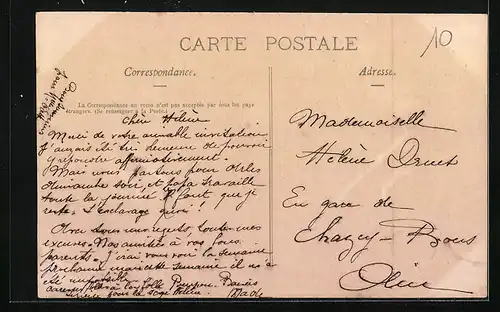 10
CARTE POSTALE
Correspondance.
Adresse.
La Correspondance au recto n'est pas acceptée par tous les pays
étrangers. (Se renseigner à la Poste.)
Chère Hélène
Merci de votre aimable invitation
J'aurais été très heureuse de pouvoir
y répondre affirmativement.
Mais nous partons pour
dimanche soir et papa travaille
toute la journée il faut que je
reste. L'esclavage quoi!
mes regrets, toutes mes
excuses. Nos amitiés à vos bons
parents. J'irai vous voir la semaine
prochaine cette semaine il m'a
été impossible
Hélène Made
Mademoiselle
Hélène
En gare de
Oise